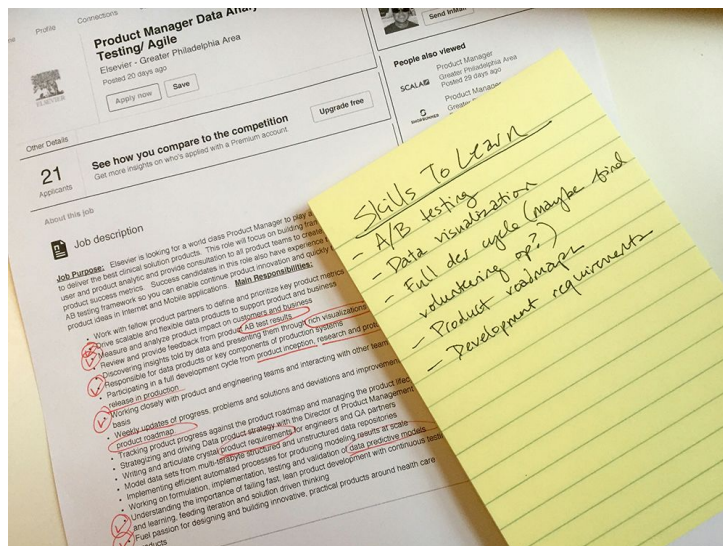 Profile
Connections
Product Manager Data Analy
Testing/ Agile
Elsevier - Greater Philadelphia Area
Posted 20 days ago
Apply now
Save
ELSEVIER
Send InMail
People also viewed
SCALAR
Product Manager
Greater Philadelphia Area
Posted 29 days ago
Product Manager
Other Details
21
Applicants
See how you compare to the competition
Get more insights on who's applied with a Premium account.
Upgrade free
About this job
Job description
Job Purpose: Elsevier is looking for a world class Product Manager to play a
to deliver the best clinical solution products. This role will focus on building fram
user and product analytic and provide consultation to all product teams to create
product success metrics. Success candidates in this role also have experience
AB testing framework so you can enable continue product innovation and quickly
product ideas in Internet and Mobile applications. Main Responsibilities:
Work with fellow product partners to define and prioritize key product metrics
Drive scalable and flexible data products to support product and business
Measure and analyze product impact on customers and business
Review and provide feedback from product AB test results
Discovering insights told by data and presenting them through rich visualizations
Responsible for data products or key components of production systems
Participating in a full development cycle from product inception, research and prot
release in production
Working closely with product and engineering teams and interacting with other team
basis
Weekly updates of progress, problems and solutions and deviations and improvem
product roadmap
Tracking product progress against the product roadmap and managing the product lifec
Strategizing and driving Data product strategy with the Director of Product Management
Writing and articulate crystal product requirements for engineers and QA partners
Model data sets from multi-terabyte structured and unstructured data repositories
Implementing efficient automated processes for producing modeling results at scale
Working on formulation, implementation, testing and validation of data predictive models
Understanding the importance of failing fast, lean product development with continuous testin
and learning, feeding iteration and solution driven thinking
Fuel passion for designing and building innovative, practical products around health care
products
Skills To Learn
- A/B testing
- Data visualization
- Full dev cycle (maybe find
volunteering op?)
- Product roadmaps
- Development requirements